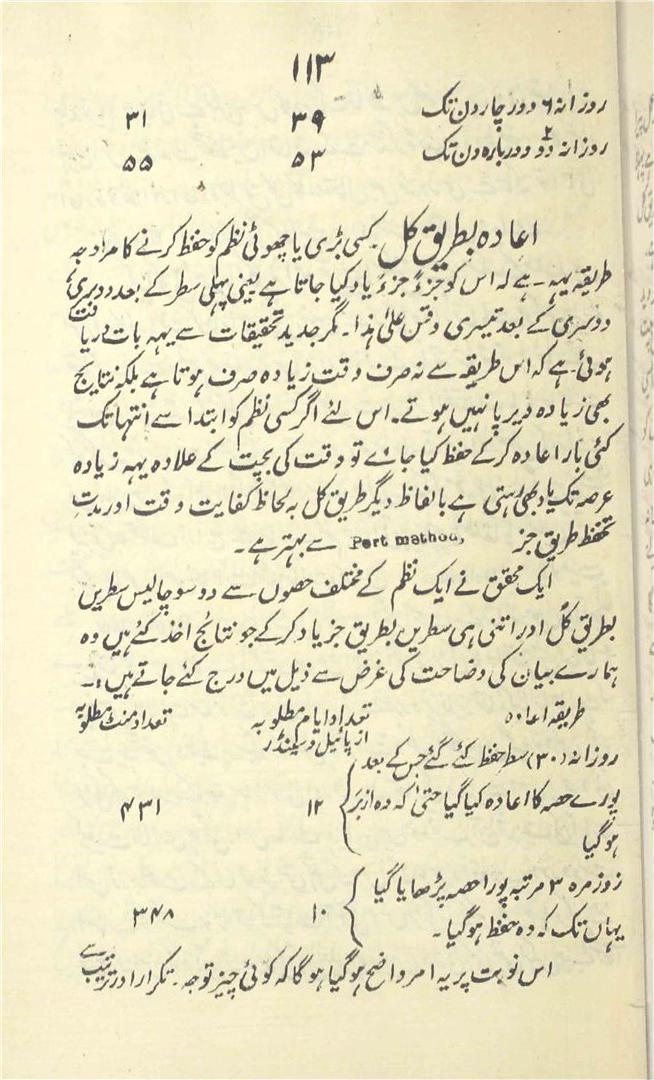 ۱۱۳
روزانہ ۶ دور چار دن تک ۳۹ ۳۱
روزانہ دو ۲ دور بارہ دن تک ۵۳ ۵۵
اعادہ بطریق کل۔ کسی بڑی یا چھوٹی نظم کو حفظ کرنے کا مراد جہ
طریقہ یہہ ۔ ہے کہ اس کو جزءً جزءً یاد کیا جاتا ہے یعنی پہلی سطر کے بعد دوسری،
دوسری کے بعد تیسری وقس علیٰ ہذا۔ مگر جدید تحقیقات سے یہہ بات دریافت
ہوئی ہے کہ اس طریقہ سے نہ صرف وقت زیادہ صرف ہوتا ہے بلکہ نتایج
بھی زیادہ دیرپا نہیں ہوتے۔ اس لئے اگر کسی نظم کو ابتدا سے انتہا تک
کئی بار اعادہ کر کے حفظ کیا جائے تو وقت کی بچت کے علاوہ یہہ زیادہ
عرصہ تک یاد بھی رہتی ہے بالفاظ دیگر طریق کل بہ لحاظ کفایت وقت اور مدت
تحفظ طریق جز Part mathod, سے بہتر ہے۔
ایک محقق نے ایک نظم کے مختلف حصوں سے دو سو چالیس سطریں
بطریق کل اور اتنی ہی سطریں بطریق جز یاد کر کے جو نتائج اخذ کئے ہیں وہ
ہمارے بیان کی وضاحت کی غرض سے ذیل میں درج کئے جاتے ہیں:۔
طریقہ اعادہ تعداد ایام مطلوبہ تعداد منٹ مطلوبہ
از پائیل وسیکنڈر
روزانہ (۳۰) سطر حفظ کئے گئے جس کے بعد
پورے حصہ کا اعادہ کیا گیا حتیٰ کہ وہ ازبر ۱۲ ۴۳۱
ہو گیا
روزمرہ ۳ مرتبہ پورا حصہ پڑھایا گیا
یہاں تک کہ وہ حفظ ہو گیا۔ ۱۰ ۳۴۸
اس نوبت پر یہ امر واضح ہو گیا ہوگا کہ کوئی چیز توجہ۔ تکرار اور ترتیب سے